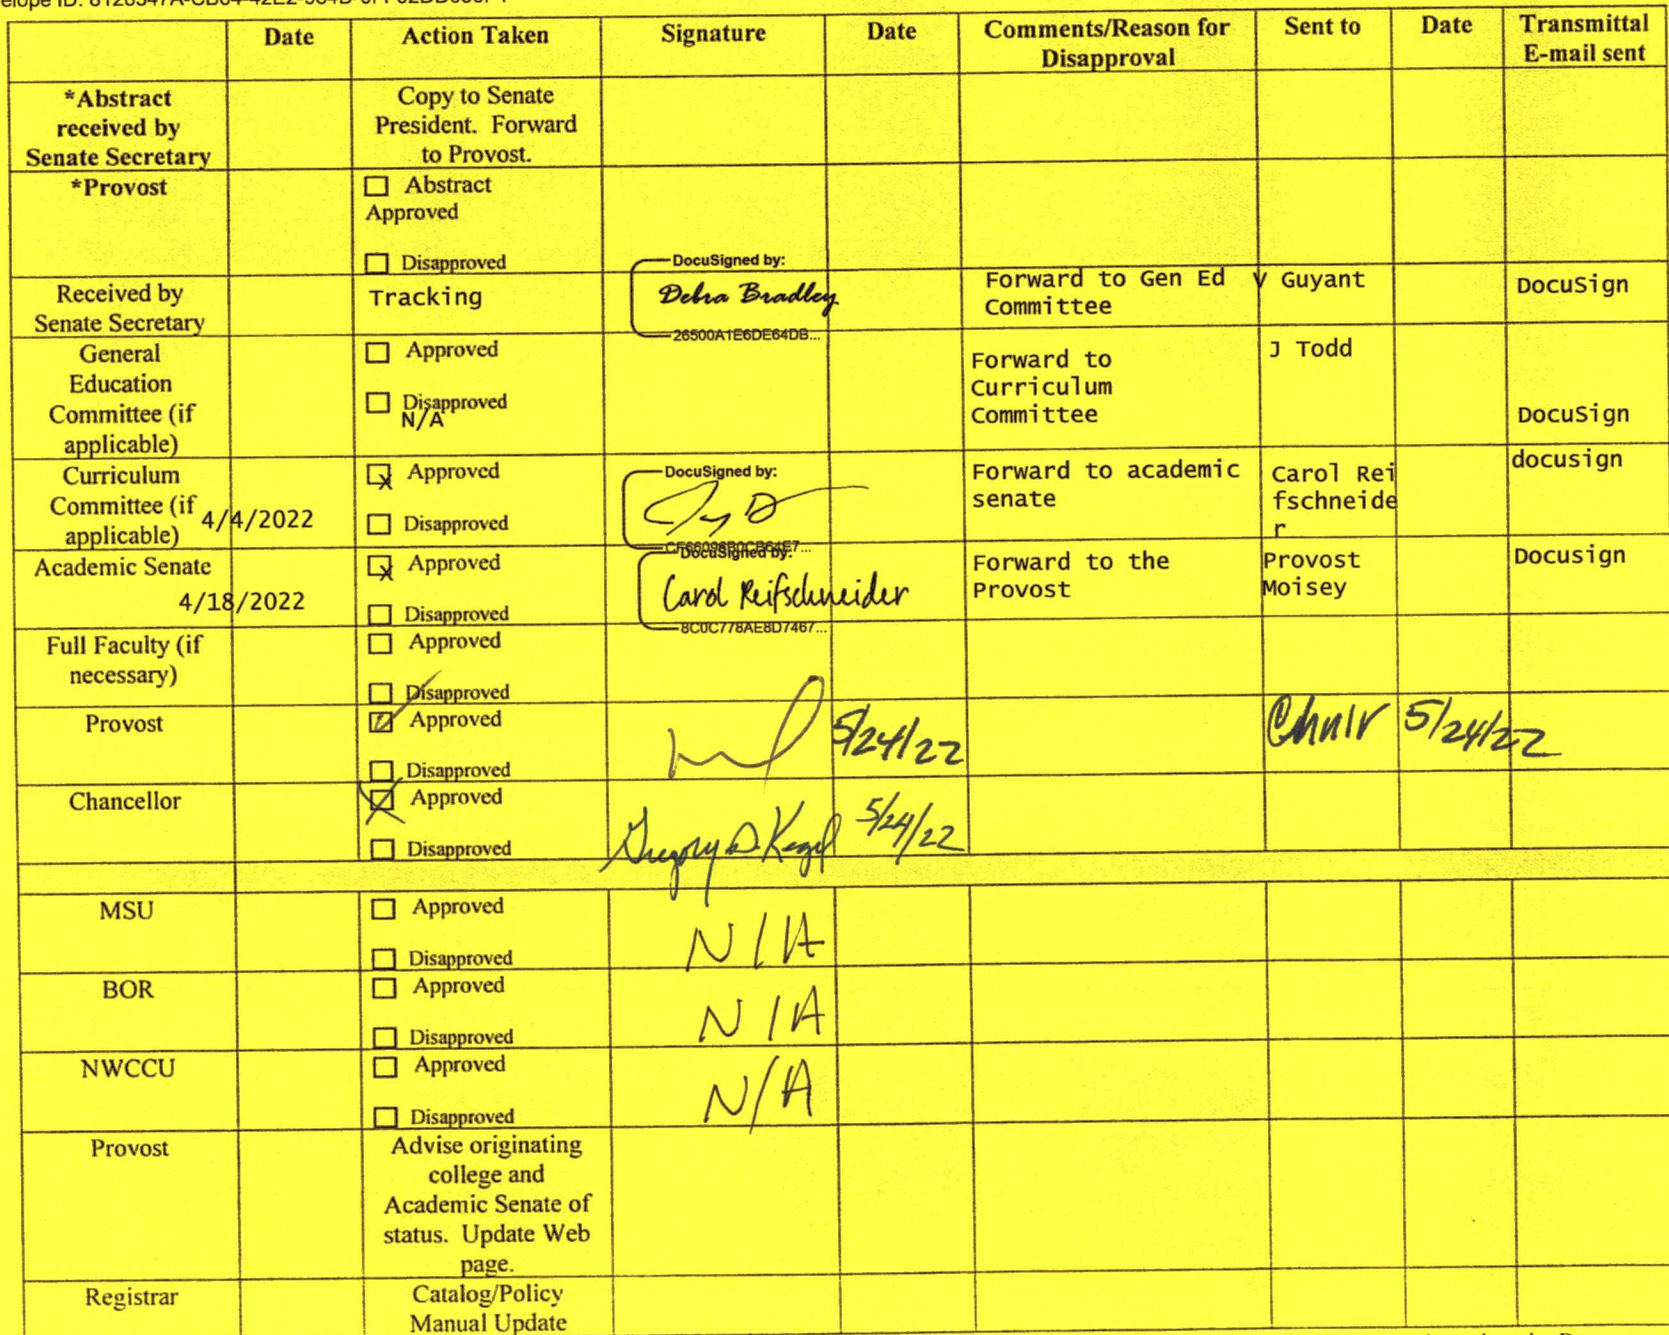 Date Action Taken Signature Date Comments/Reason for Disapproval Sent to Date Transmittal E-mail sent
*Abstract received by Senate Secretary
Copy to Senate President. Forward to Provost.
*Provost
Abstract Approved
Disapproved
Received by Senate Secretary
Tracking
DocuSigned by:
Debra Bradley
26500A1E6DE64DB...
Forward to Gen Ed Committee
V Guyant
DocuSign
General Education Committee (if applicable)
Approved
Disapproved
N/A
Forward to Curriculum Committee
J Todd
DocuSign
Curriculum Committee (if applicable)
4/4/2022
x Approved
Disapproved
DocuSigned by:
Forward to academic senate
Carol Rei
fschneide
r
docusign
Academic Senate
4/18/2022
x Approved
Disapproved
DocuSigned by:
Carol Reifschneider
8C0C778AE8D7467...
Forward to the Provost
Provost Moisey
Docusign
Full Faculty (if necessary)
Approved
Disapproved
Provost
Approved
Disapproved
5/24/22
5/24/22
Chancellor
Approved
Disapproved
Gregory D. Kegel
5/24/22
MSU
Approved
Disapproved
N/A
BOR
Approved
Disapproved
N/A
NWCCU
Approved
Disapproved
N/A
Provost
Advise originating college and Academic Senate of status. Update Web page.
Registrar
Catalog/Policy Manual Update